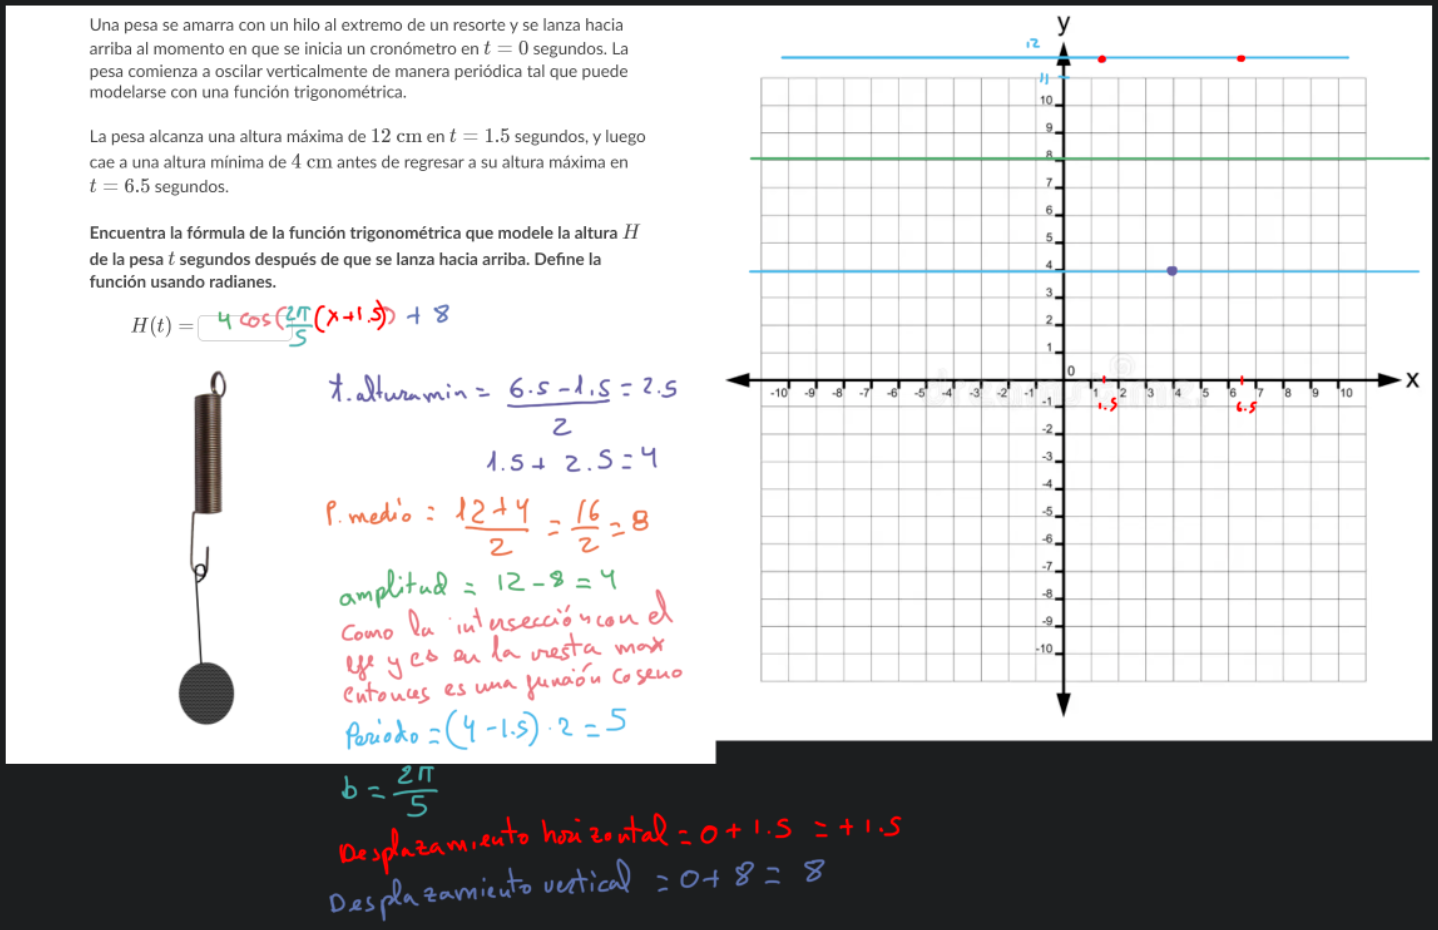 Una pesa se amarra con un hilo al extremo de un resorte y se lanza hacia
arriba al momento en que se inicia un cronómetro en t = 0 segundos. La
pesa comienza a oscilar verticalmente de manera periódica tal que puede
modelarse con una función trigonométrica.
La pesa alcanza una altura máxima de 12 cm en t = 1.5 segundos, y luego
cae a una altura mínima de 4 cm antes de regresar a su altura máxima en
t = 6.5 segundos.
Encuentra la fórmula de la función trigonométrica que modele la altura H
de la pesa t segundos después de que se lanza hacia arriba. Define la
función usando radianes.
H(t) = 4 cos(2π/5 (x+1.5)) + 8
t. altura min = (6.5 - 1.5)/2 = 2.5
1.5 + 2.5 = 4
P. medio = (12+4)/2 = 16/2 = 8
amplitud = 12 - 8 = 4
Como la intersección con el
eje y es en la resta max
entonces es una función coseno
Periodo = (4 - 1.5) · 2 = 5
b = 2π/5
Desplazamiento horizontal = 0 + 1.5 = +1.5
Desplazamiento vertical = 0 + 8 = 8
y
12
11
10
9
8
7
6
5
4
3
2
1
0
x
-10 -9 -8 -7 -6 -5 -4 -3 -2 -1 1 2 3 4 5 6 7 8 9 10
1.5 6.5
-1
-2
-3
-4
-5
-6
-7
-8
-9
-10